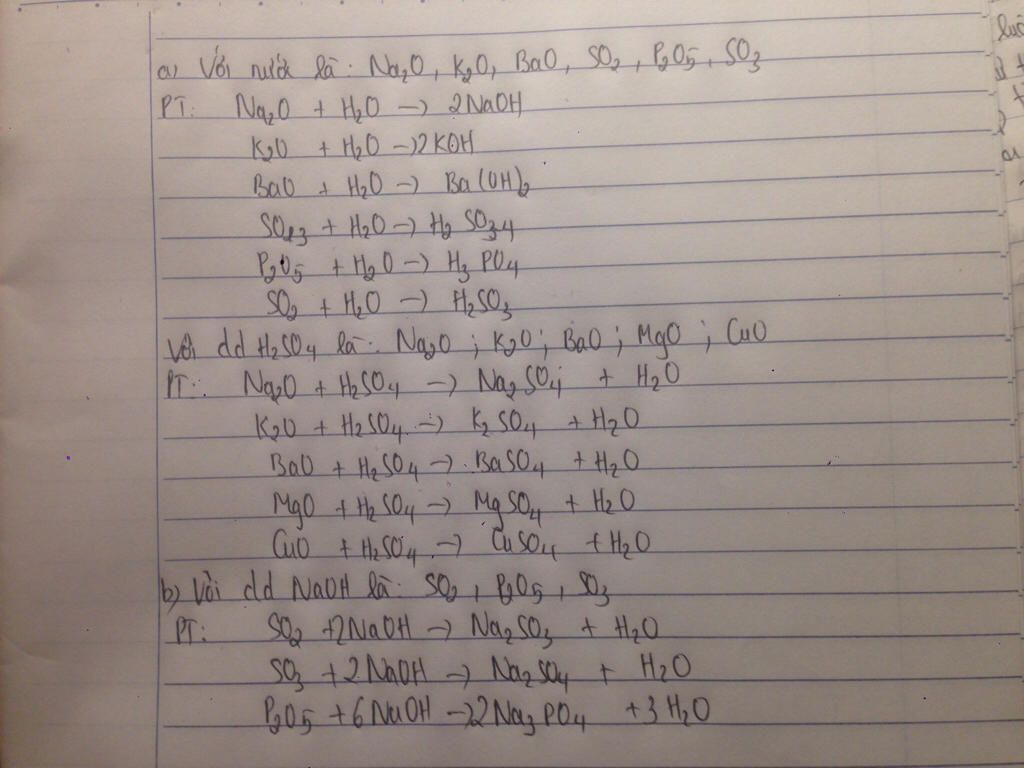 a) Với nước là: Na₂O, K₂O, BaO, SO₂, P₂O₅, SO₃
PT: Na₂O + H₂O → 2NaOH
K₂O + H₂O → 2KOH
BaO + H₂O → Ba(OH)₂
SO₃ + H₂O → H₂SO₄
P₂O₅ + H₂O → H₃PO₄
SO₂ + H₂O → H₂SO₃
Với dd H₂SO₄ là: Na₂O ; K₂O ; BaO ; MgO ; CuO
PT: Na₂O + H₂SO₄ → Na₂SO₄ + H₂O
K₂O + H₂SO₄ → K₂SO₄ + H₂O
BaO + H₂SO₄ → BaSO₄ + H₂O
MgO + H₂SO₄ → MgSO₄ + H₂O
CuO + H₂SO₄ → CuSO₄ + H₂O
b) Với dd NaOH là: SO₂, P₂O₅, SO₃
PT: SO₂ + 2NaOH → Na₂SO₃ + H₂O
SO₃ + 2NaOH → Na₂SO₄ + H₂O
P₂O₅ + 6NaOH → 2Na₃PO₄ + 3H₂O